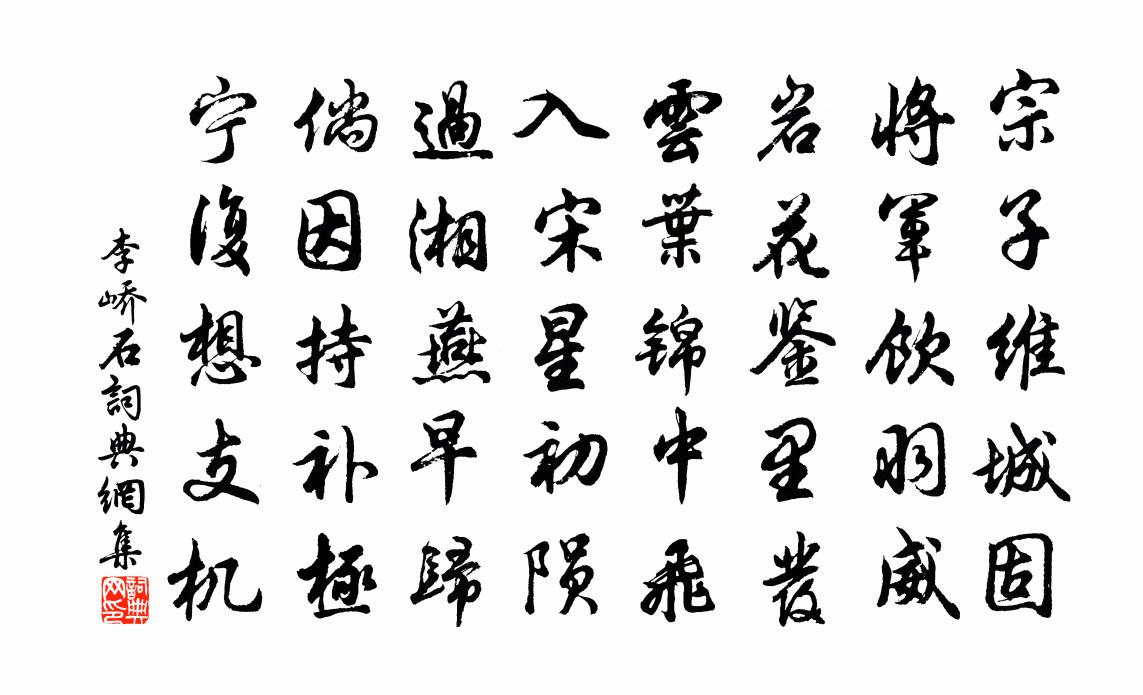 宗子维城固
将軍飲羽威
岩花鉴里發
雲葉锦中飛
入宋星初陨
過湘燕早歸
倘因持补極
宁復想支机
李峤石詞典網集
詞典网印